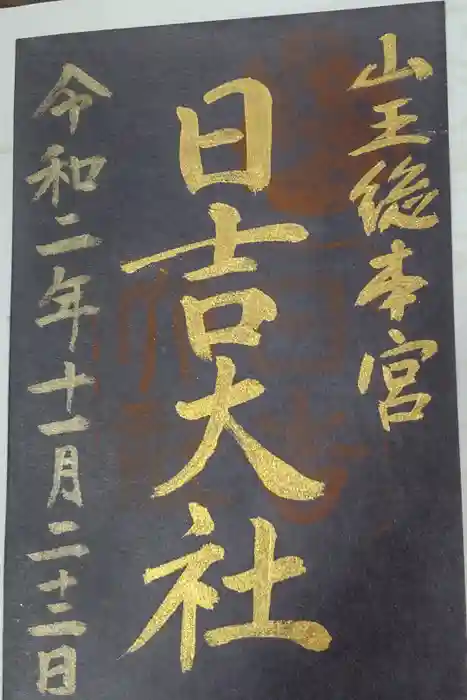 山王総本宮
日吉大社
令和二年十一月二十二日